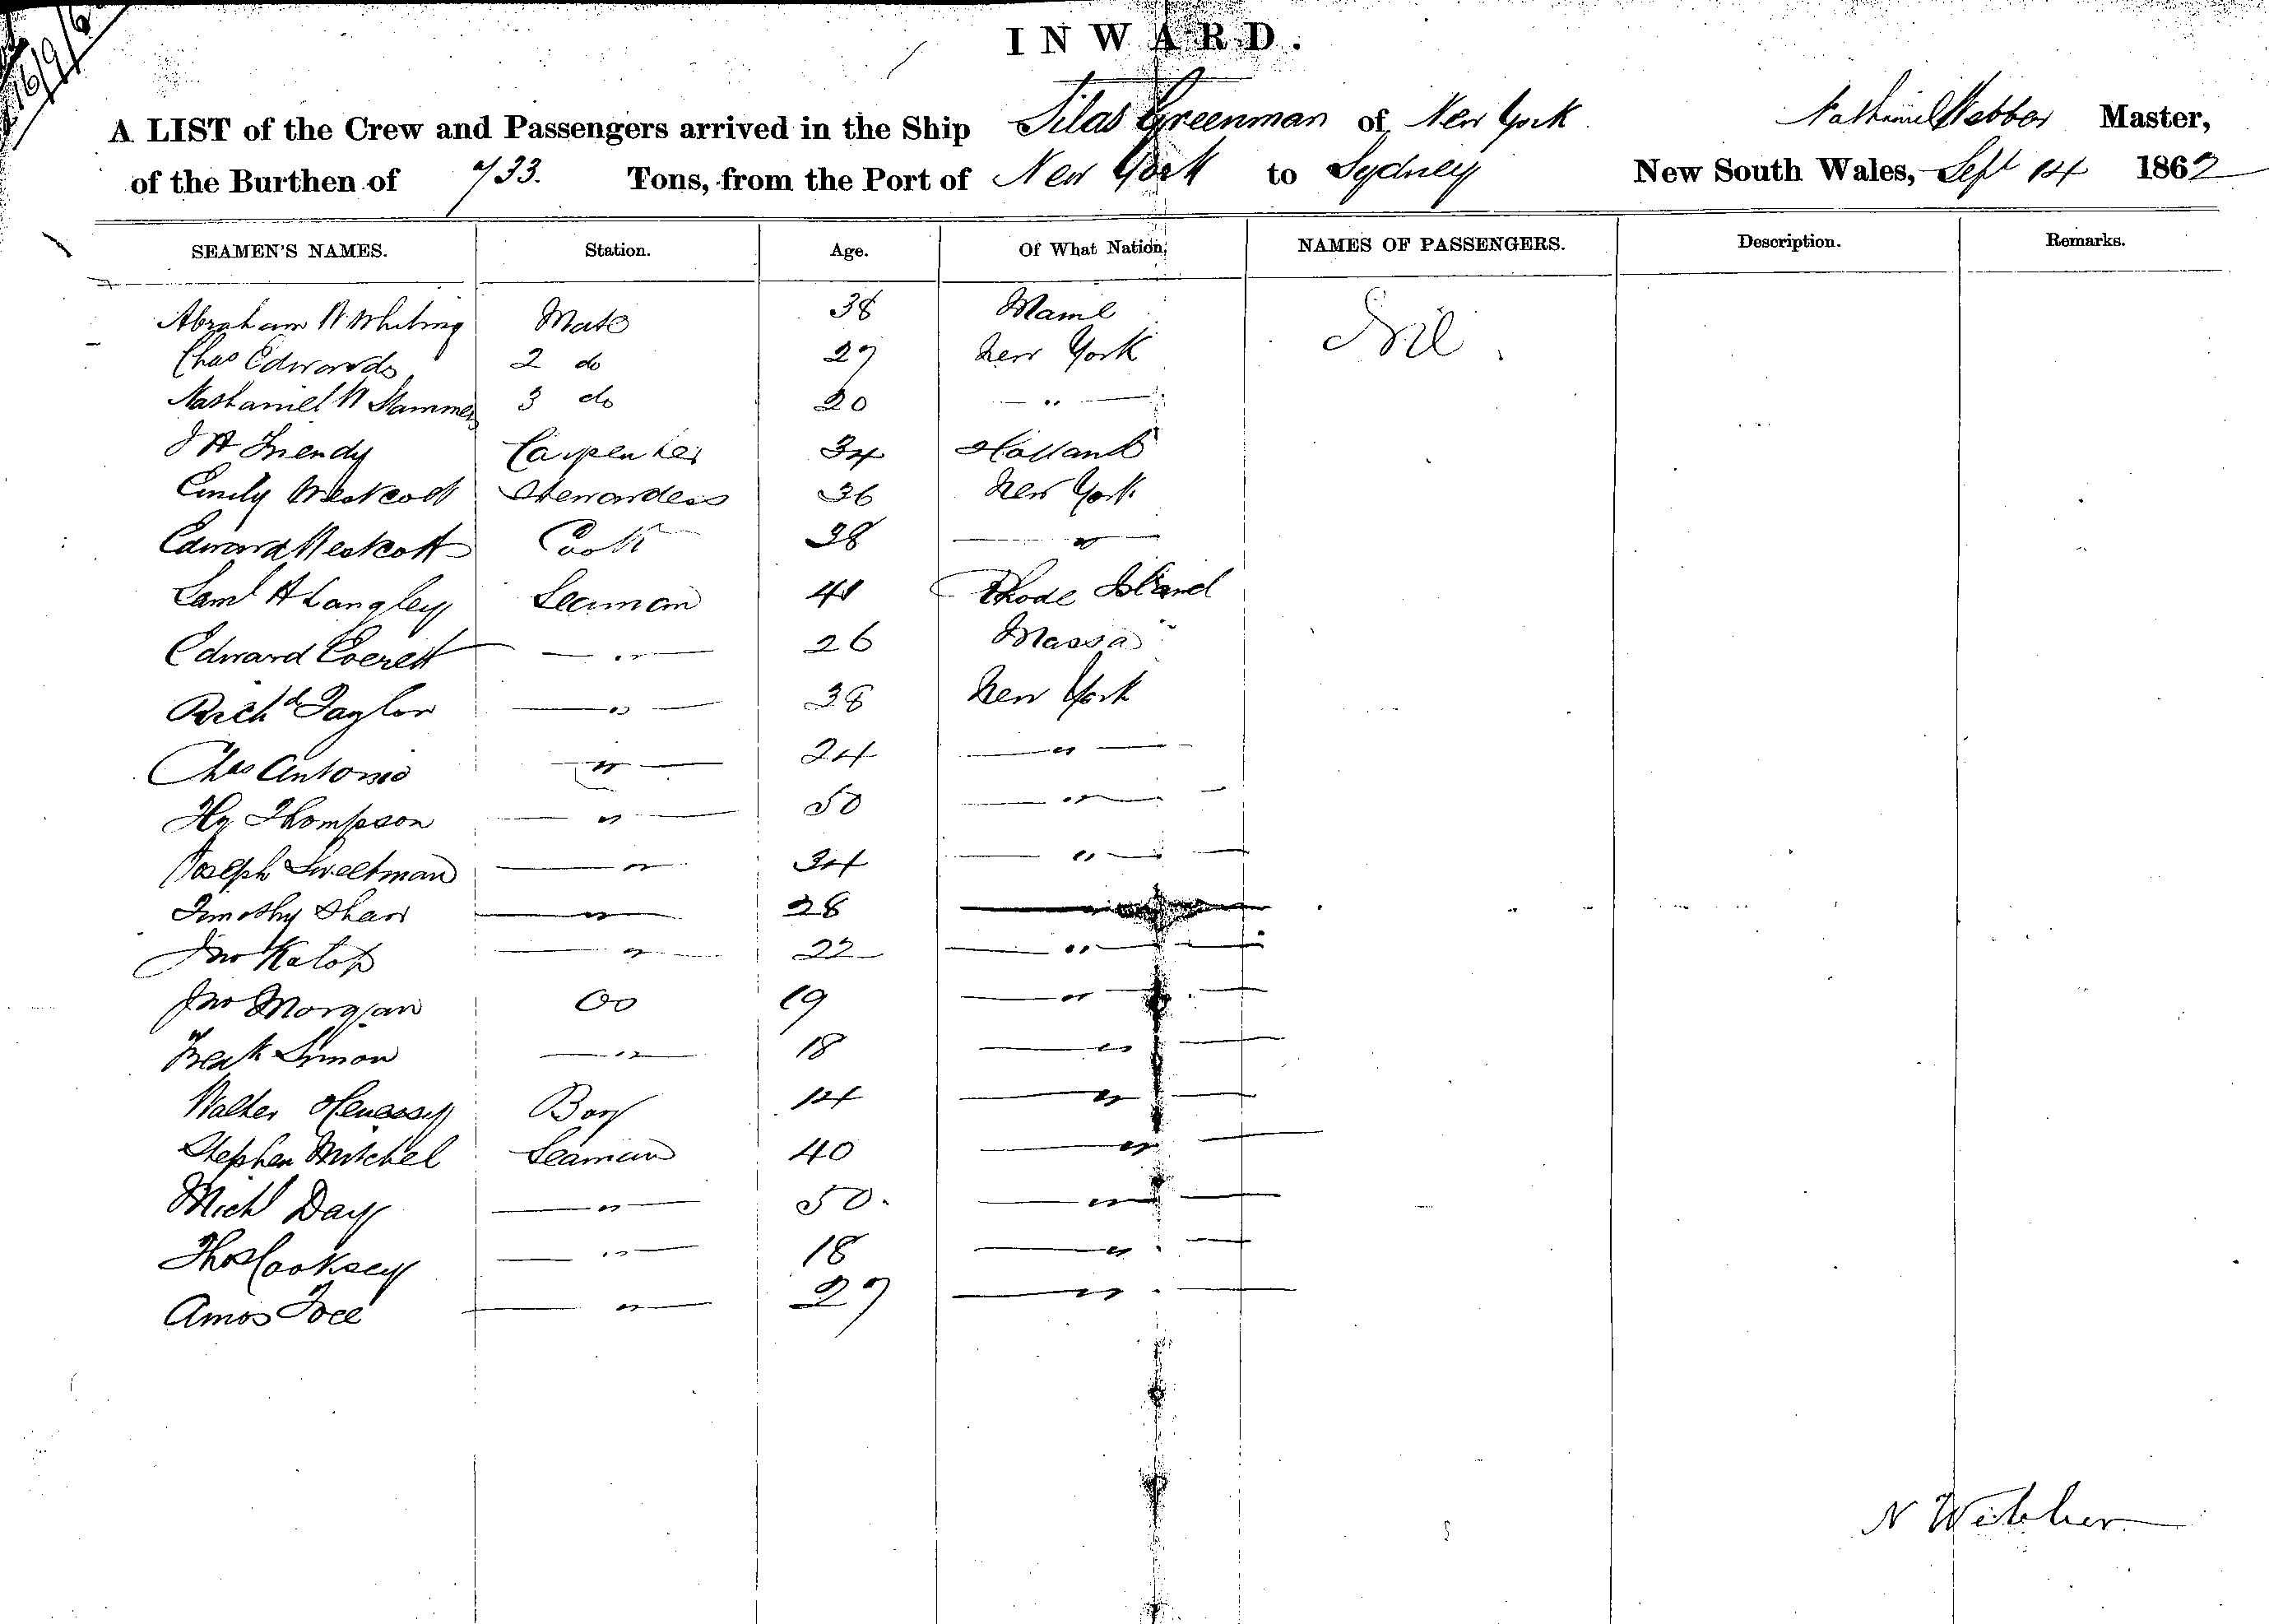 16/9/6
INWARD.
A LIST of the Crew and Passengers arrived in the Ship Silas Greenman of New York Nathaniel Webber Master,
of the Burthen of 733. Tons, from the Port of New York to Sydney New South Wales, Sept 14 1862
SEAMEN'S NAMES. Station. Age. Of What Nation, NAMES OF PASSENGERS. Description. Remarks.
Abraham W Whiting Mate 38 Maine Nil.
Chas Edwards 2 do 27 New York
Nathaniel W Stammers 3 do 20 — " —
J H Friendy Carpenter 34 Holland
Emily Westcott Stewardess 36 New York
Edward Westcott Cook 38 — " —
Saml A Langley Seaman 41 Rhode Island
Edward Everett — " — 26 Massa
Richd Taylor — " — 38 New York
Chas Antonio — " — 24 — " —
Hy Thompson — " — 50 — " —
Joseph Sweetman — " — 34 — " —
Timothy Shaw — " — 28 — " —
Jno Katop — " — 22 — " —
Jno Morgan OO 19 — " —
Fredk Simon — " — 18 — " —
Walter Henessy Boy 14 — " —
Stephen Mitchel Seaman 40 — " —
Michl Day — " — 50. — " —
Thos Cooksey — " — 18 — " —
Amos — " — 27 — " —
N Webber